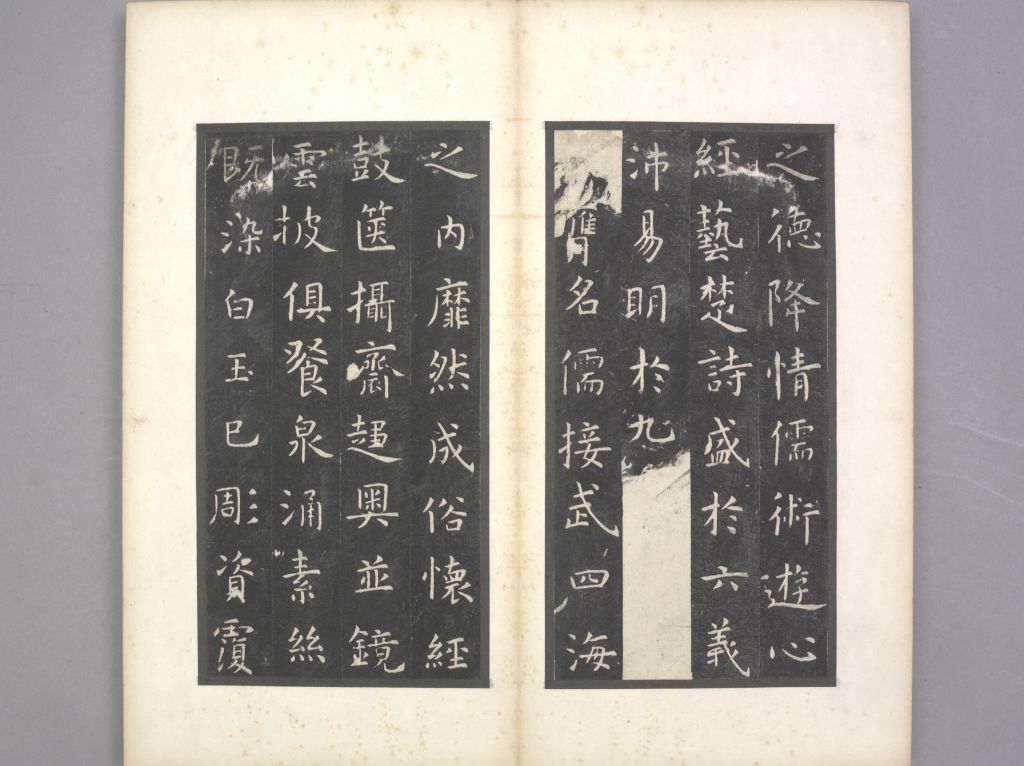 之德降情儒術遊心
經藝楚詩盛於六義
沛易明於九
膺名儒接武四海
之内靡然成俗懷經
鼓篋攝齋趍奥並鏡
雲披俱飡泉涌素絲
既染白玉已彫資覆